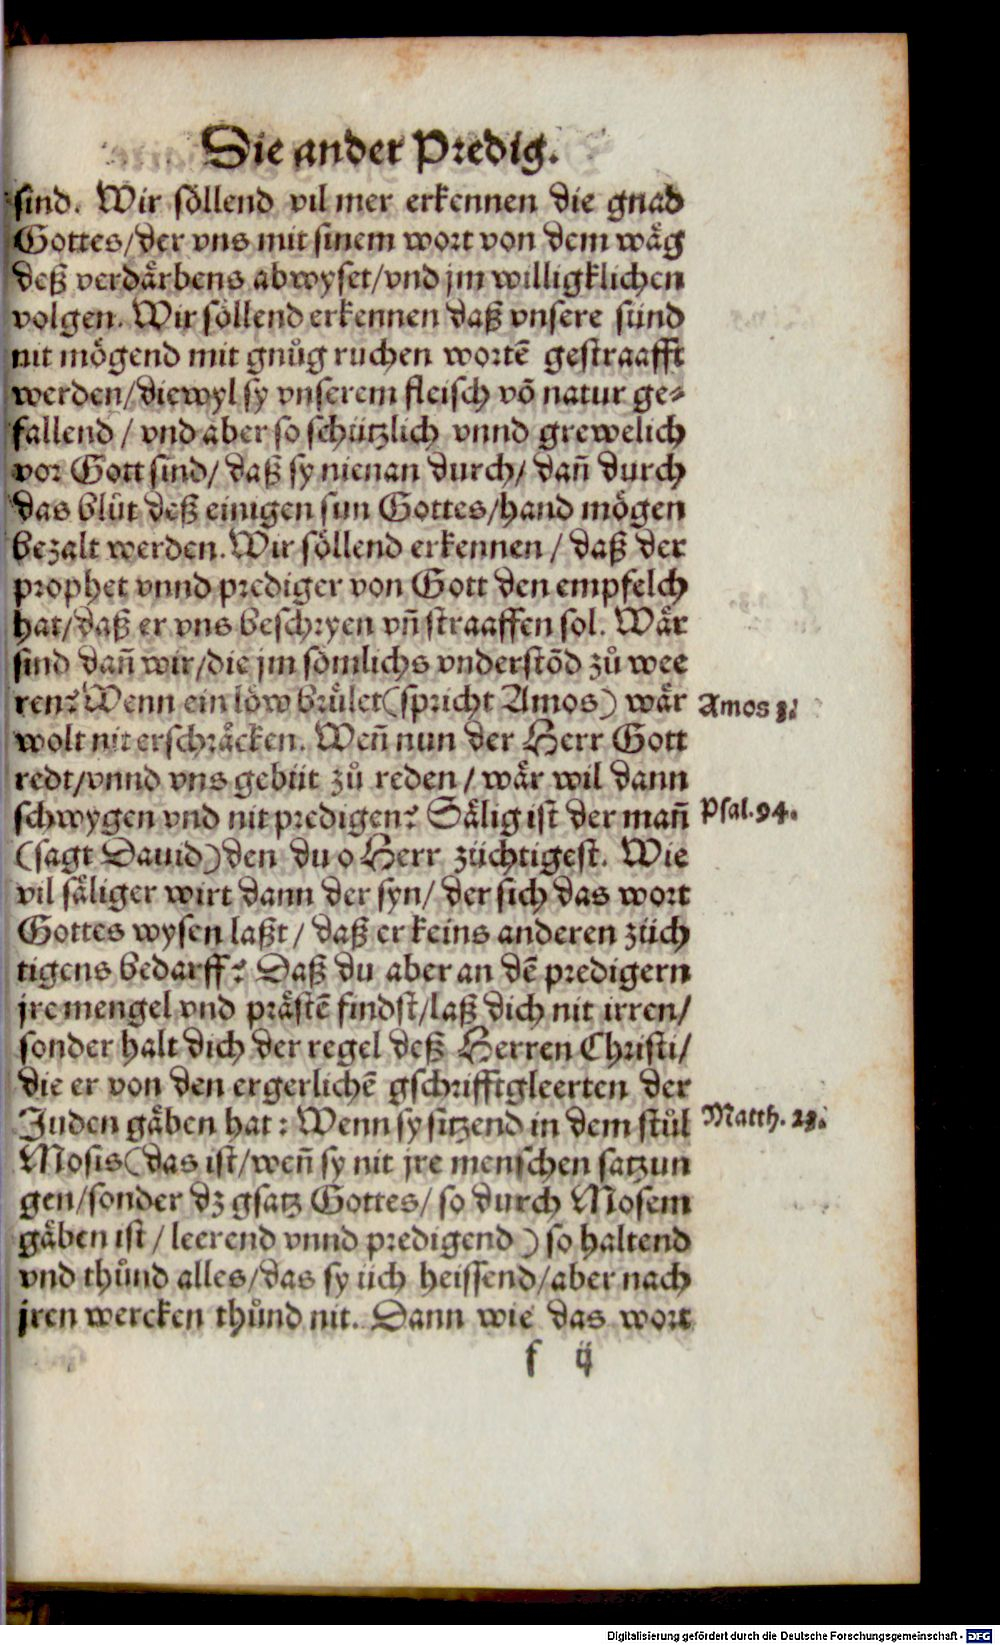 Die ander Predig.
sind. Wir söllend vil mer erkennen die gnad
Gottes/der vns mit sinem wort von dem wäg
deß verdärbens abwyset/vnd jm willigklichen
volgen. Wir söllend erkennen daß vnsere sünd
nit mögend mit gnůg ruchen wortē gestraafft
werden/diewyl sy vnserem fleisch vō natur ge⸗
fallend / vnd aber so schützlich vnnd grewelich
vor Gott sind/ daß sy nienan durch/ dañ durch
das blůt deß einigen sun Gottes/hand mögen
bezalt werden. Wir söllend erkennen / daß der
prophet vnnd prediger von Gott den empfelch
hat/daß er vns beschryen vñ straaffen sol. Wär
sind dañ wir/die jm sömlichs vnderstōd zů wee
ren? Wenn ein löw brůlet (spricht Amos) wär
Amos 3.
wolt nit erschräcken. Weñ nun der Herr Gott
redt/vnnd vns gebüt zů reden / wär wil dann
schwygen vnd nit predigen? Sälig ist der mañ
Psal. 94.
(sagt Dauid) den du o Herr züchtigest. Wie
vil säliger wirt dann der syn/ der sich das wort
Gottes wysen laßt / daß er keins anderen züch
tigens bedarff? Daß du aber an dē predigern
jre mengel vnd prästē findst/laß dich nit irren/
sonder halt dich der regel deß Herren Christi/
die er von den ergerlichē gschrifftgleerten der
Juden gäben hat: Wenn sy sitzend in dem stůl
Matth. 23.
Mosis (das ist/weñ sy nit jre menschen satzun
gen/sonder dz gsatz Gottes/ so durch Mosem
gäben ist / leerend vnnd predigend ) so haltend
vnd thůnd alles/das sy üch heissend/aber nach
jren wercken thůnd nit. Dann wie das wort
f ij
Digitalisierung gefördert durch die Deutsche Forschungsgemeinschaft - DFG